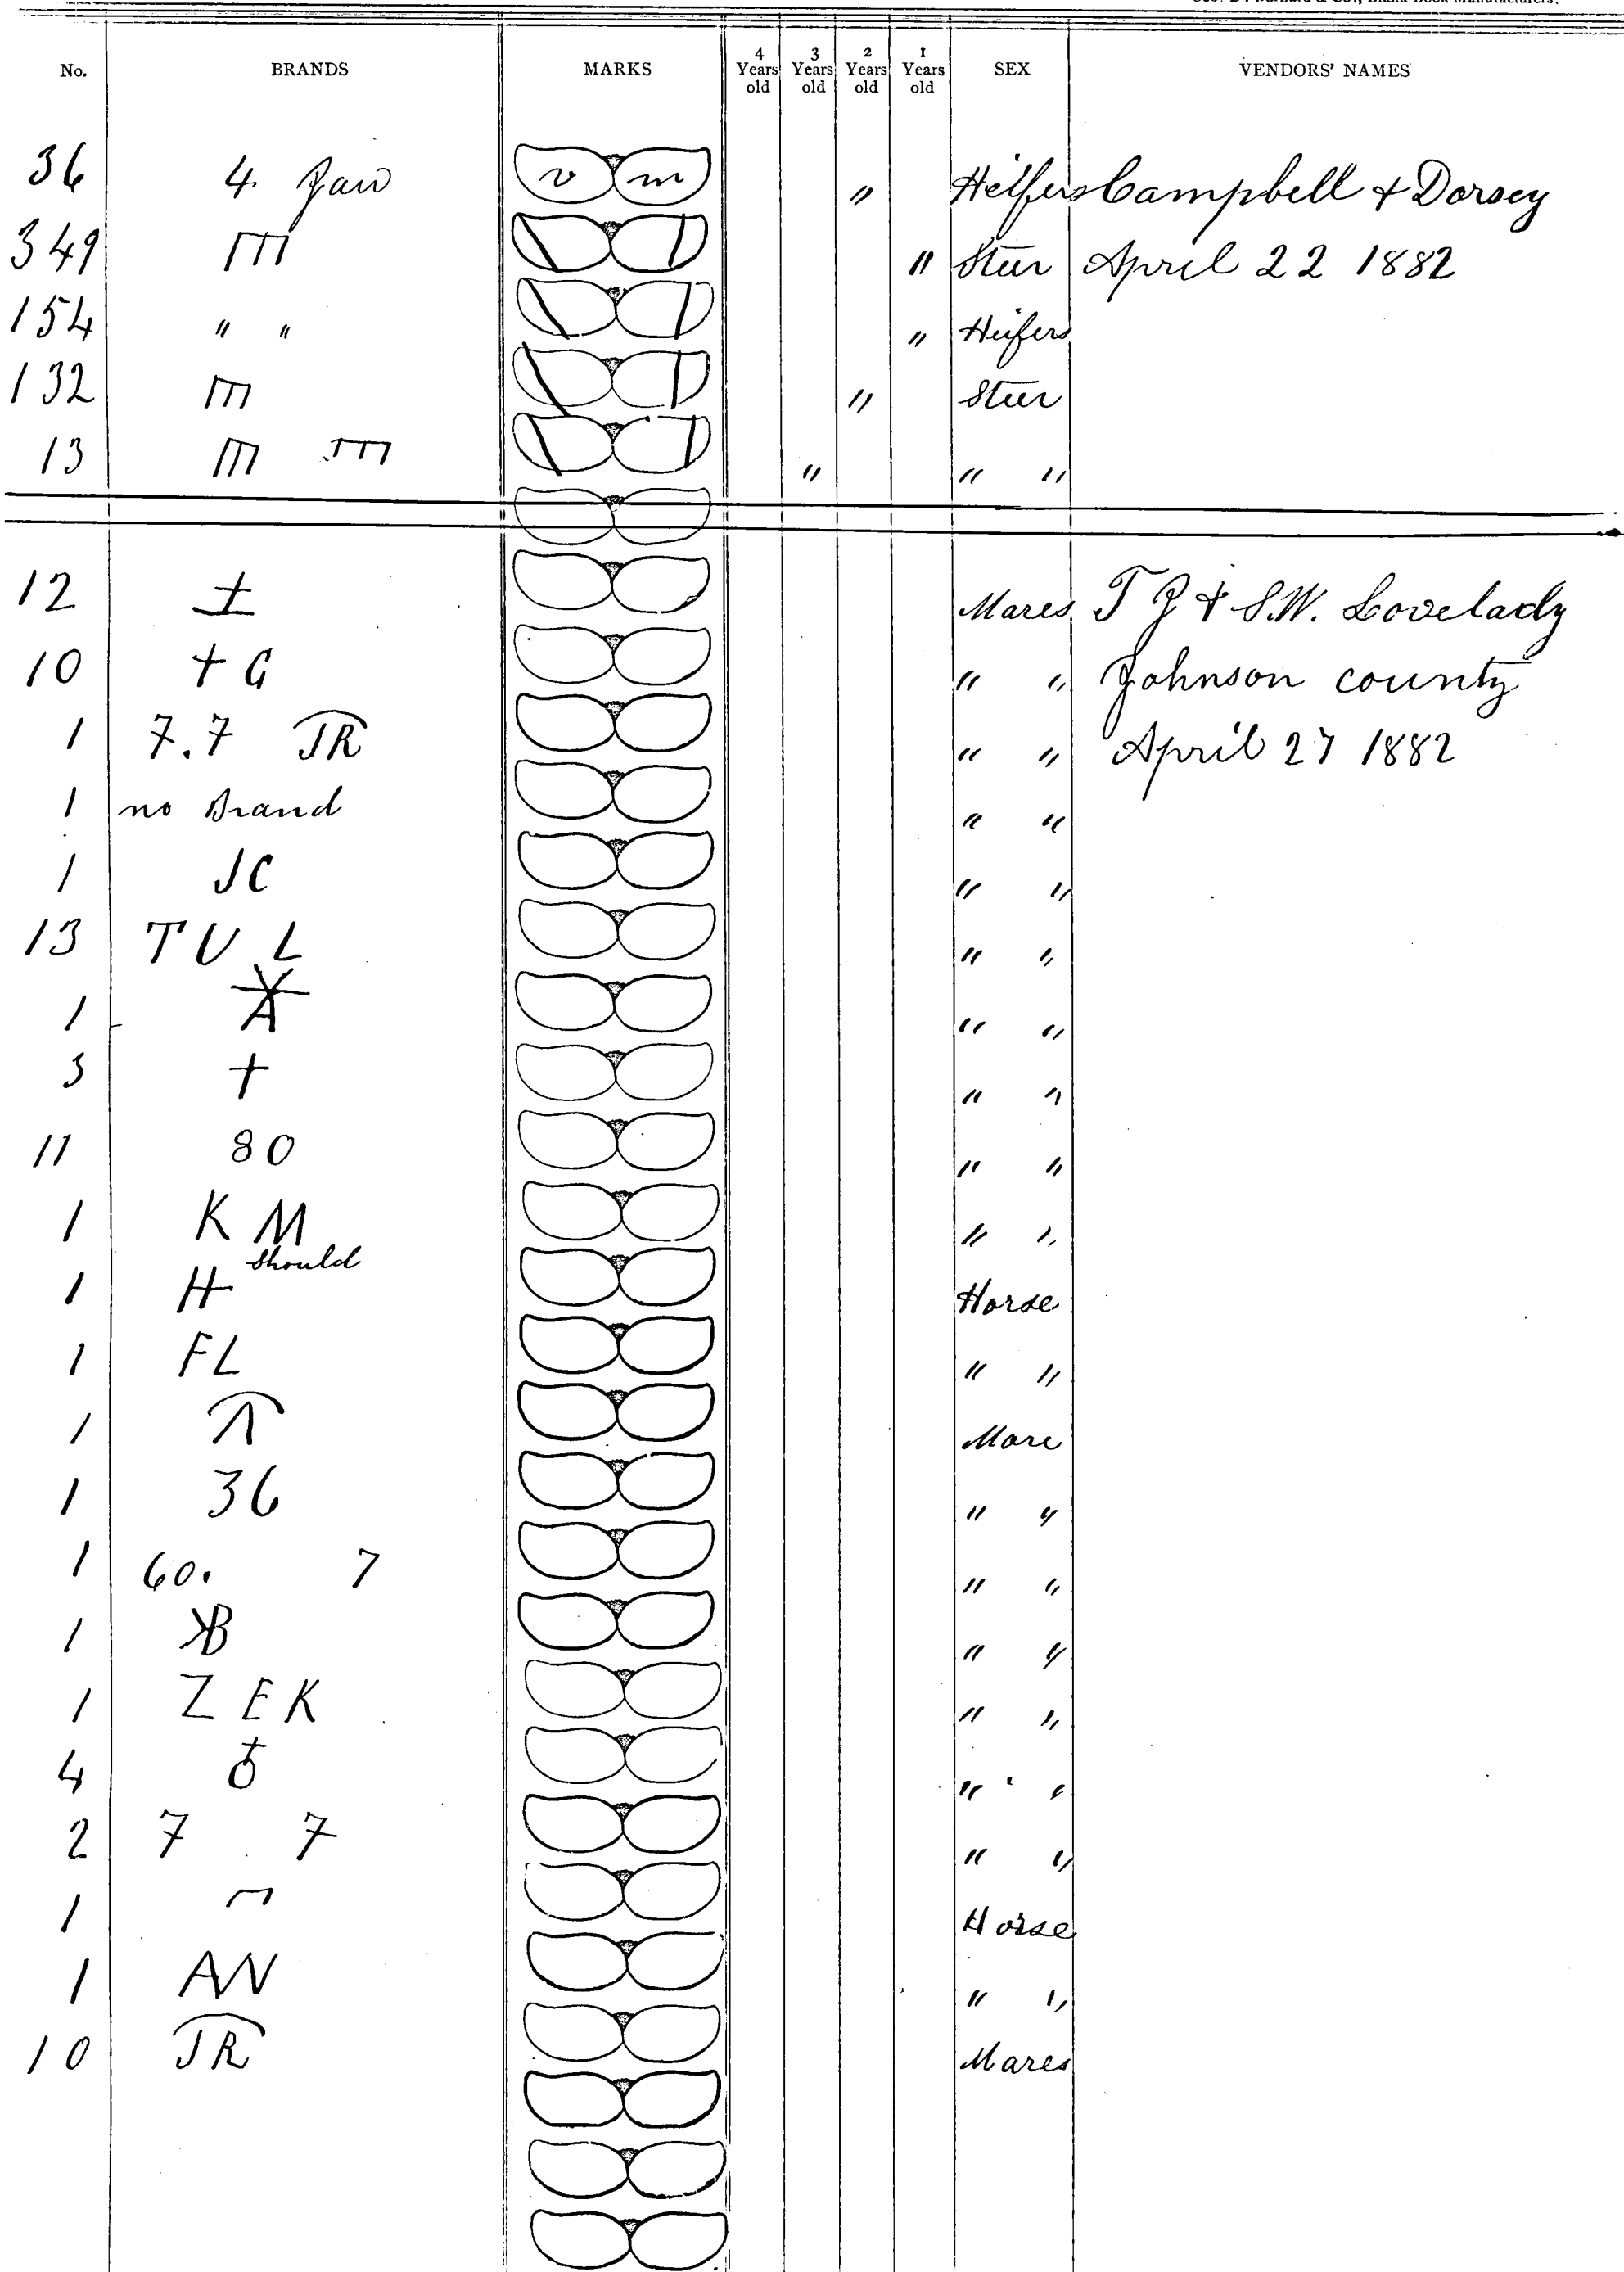 No. BRANDS MARKS 4 Years old 3 Years old 2 Years old 1 Years old SEX VENDORS' NAMES
36 4 Jaw v m " Heifers Campbell & Dorsey
349 m " Steer April 22 1882
154 " " " Heifers
132 m " Steer
13 m m " " "
12 Mares T J & S.W. Lovelady
10 + G " " Johnson county
1 7.7 JR " " April 27 1882
1 no Brand " "
1 JC " "
13 T U L " "
1 " "
3 + " "
11 80 " "
1 K M " "
1 H Should Horse
1 FL " "
1 Mare
1 36 " "
1 60. 7 " "
1 " "
1 Z E K " "
4 " "
2 7 7 " "
1 Horse
1 AN " "
10 JR Mares